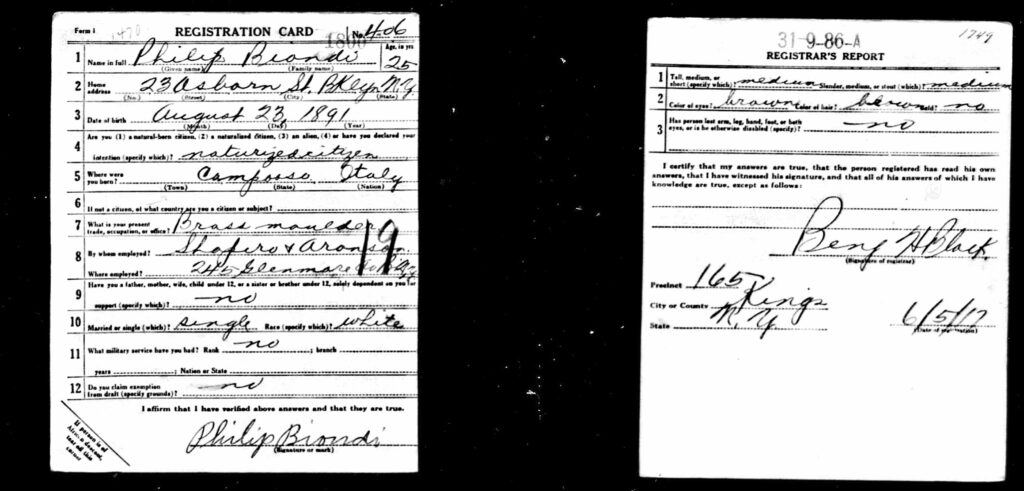 Form 1 1470 REGISTRATION CARD No. 406
1800
1 Philip Biondi Age, in yrs. 25
Name in full (Given name) (Family name)
2 Home address 23 Osborn St. Bklyn N.Y.
(No.) (Street) (City) (State)
3 Date of birth August 23 1891
(Month) (Day) (Year)
4 Are you (1) a natural-born citizen, (2) a naturalized citizen, (3) an alien, (4) or have you declared your
intention (specify which)? naturized citizen
5 Where were you born? Campoaso Italy
(Town) (State) (Nation)
6 If not a citizen, of what country are you a citizen or subject?
7 What is your present trade, occupation, or office? Brass moulder
19
8 By whom employed? Shapiro & Aronson
Where employed? 245 Glenmore
9 Have you a father, mother, wife, child under 12, or a sister or brother under 12, solely dependent on you for
support (specify which)? no
10 Married or single (which)? single Race (specify which)? white
11 What military service have you had? Rank no ; branch
years ; Nation or State
12 Do you claim exemption from draft (specify grounds)? no
I affirm that I have verified above answers and that they are true.
Philip Biondi
(Signature or mark)
If person is of
African descent,
tear off this
corner
1749
31-9-86-A
REGISTRAR'S REPORT
1 Tall, medium, or short (specify which)? medium Slender, medium, or stout (which)? medium
2 Color of eyes? brown Color of hair? brown Bald? no
3 Has person lost arm, leg, hand, foot, or both
eyes, or is he otherwise disabled (specify)? no
I certify that my answers are true, that the person registered has read his own
answers, that I have witnessed his signature, and that all of his answers of which I have
knowledge are true, except as follows:
Benj H Black.
(Signature of registrar)
Precinct 165
City or County Kings
State N.Y. 6/5/17
(Date of registration)